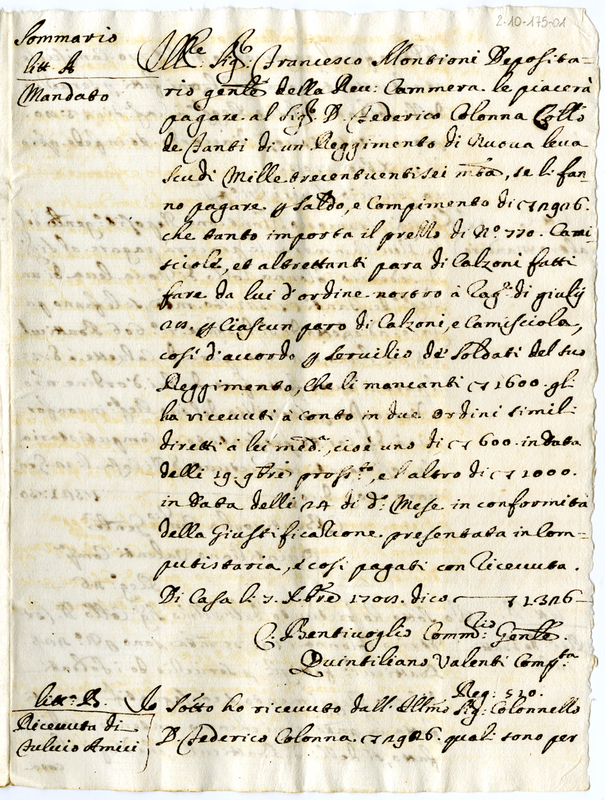 2-10-175-01
Sommario
litt. A
Mandato
Ill.re Sig.r Francesco Montioni Deposita-
rio gen.le della Rev: Cammera. le piacerà
pagare al Sig.r D. Federico Colonna Coll.o
de Fanti di un Reggimento di Nuova leva
scudi Mille trecentoventisei m.ta, se li fan-
no pagare p saldo, e compimento di
che tanto importa il prezzo di N.o 770. Cami
sciole, et altrettanti para di Calzoni fatti
fare da lui d'ordine nostro à rag.e di giulij
p ciascun paro di Calzoni, e Camisciola,
così d'accordo p servitio de Soldati del suo
Reggimento, che li mancanti 1600. gl'
ha ricevuti à conto in due Ordini simil.
diretti à lei med.a, cioè uno di 600. in data
delli 19. 9bre pross.o, e l'altro di 1000.
in data delli 24 di d.o Mese in conformità
della Giustificatione presentata in Com-
putistaria, e così pagati con ricevuta.
Di Casa li 7. Xbre 1708. dico 1326
C. Bentivoglio Comm.rio Gen.le.
Quintiliano Valenti Comp.ta
Reg: 520.
litt.a B.
Ricevuta di
Fulvio Amici
Io Sotto ho ricevuto dall' Ill.mo Sig.r Colonnello
D. Federico Colonna. quali sono per